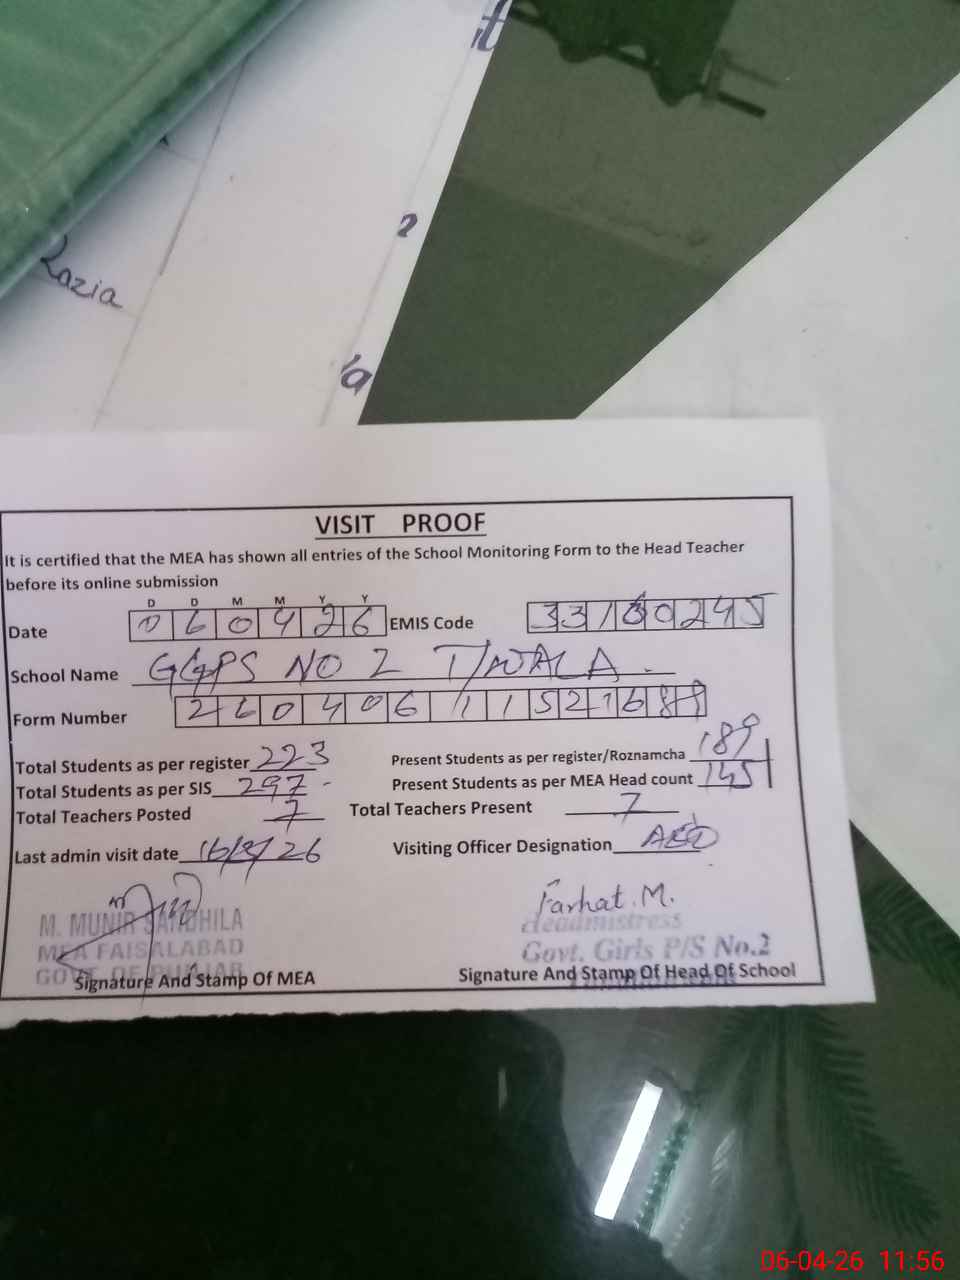 Razia
VISIT PROOF
It is certified that the MEA has shown all entries of the School Monitoring Form to the Head Teacher
before its online submission
D D M M Y Y
Date 060426 EMIS Code 33130245
School Name GGPS NO 2 T/WALA.
Form Number 260406115216
Total Students as per register 223 Present Students as per register/Roznamcha 189
Total Students as per SIS 297 Present Students as per MEA Head count 145
Total Teachers Posted 7 Total Teachers Present 7
Last admin visit date 16/3/26 Visiting Officer Designation AEO
Farhat.M.
M. MUNIR SANDHILA Headmistress
MEA FAISALABAD Govt. Girls P/S No.2
GOVT OF PUNJAB
Signature And Stamp Of MEA Signature And Stamp Of Head Of School
06-04-26 11:56